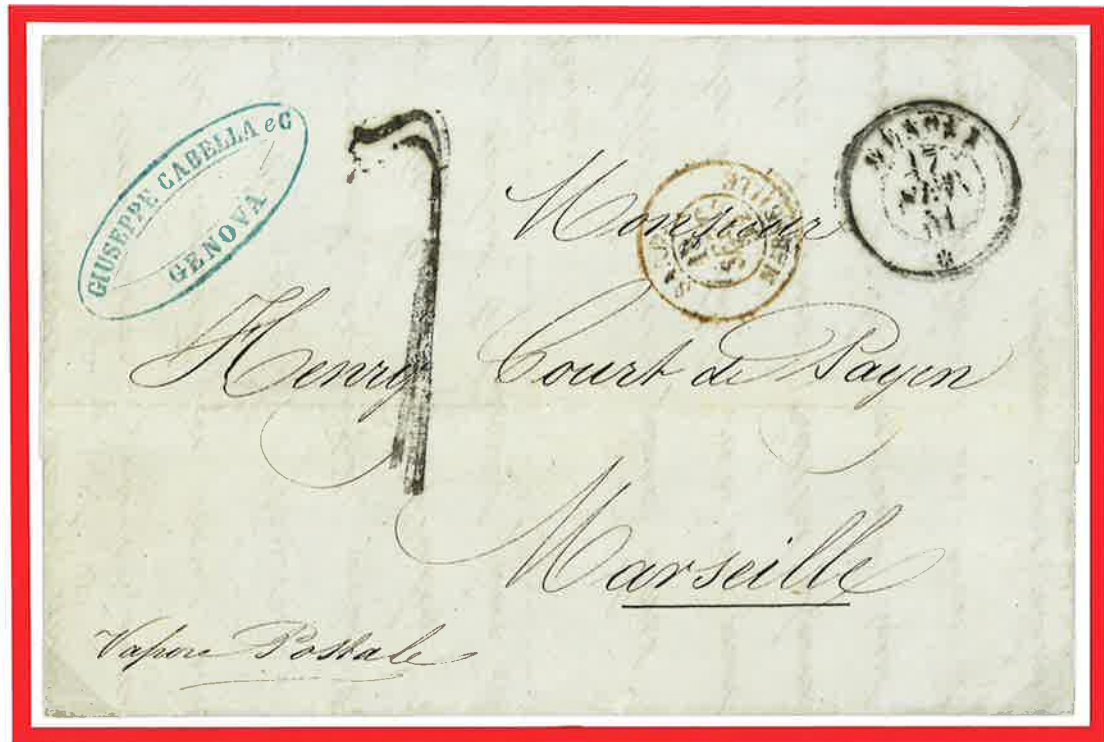 GIUSEPPE CABELLA e C
GENOVA
Monsieur
Henry Court de Payen
Marseille
Vapore Postale